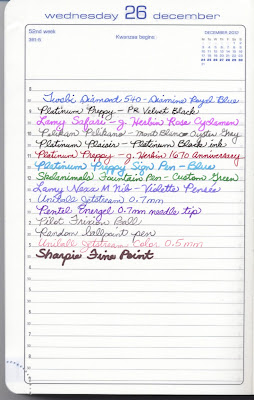 wednesday 26 december
52nd week
361-5
Kwanzaa begins
DECEMBER 2012
Twsbi Diamond 540 - Diamine Royal Blue
Platinum Preppy - PR Velvet Black
Lamy Safari - J. Herbin Rose Cyclamen
Pelikan Pelikano - Mont Blanc Oyster Grey
Platinum Plaisir - Platinum Black ink
Platinum Preppy - J. Herbin 1670 Anniversary
Platinum Preppy Sign Pen - Blue
Skelanimals Fountain Pen - Custom Green
Lamy Nexx M Nib - Violette Pensée
Uniball Jetstream 0.7mm
Pentel Energel 0.7mm needle tip
Pilot Frixion Ball
Random ballpoint pen
Uniball Jetstream Color 0.5mm
Sharpie Fine Point